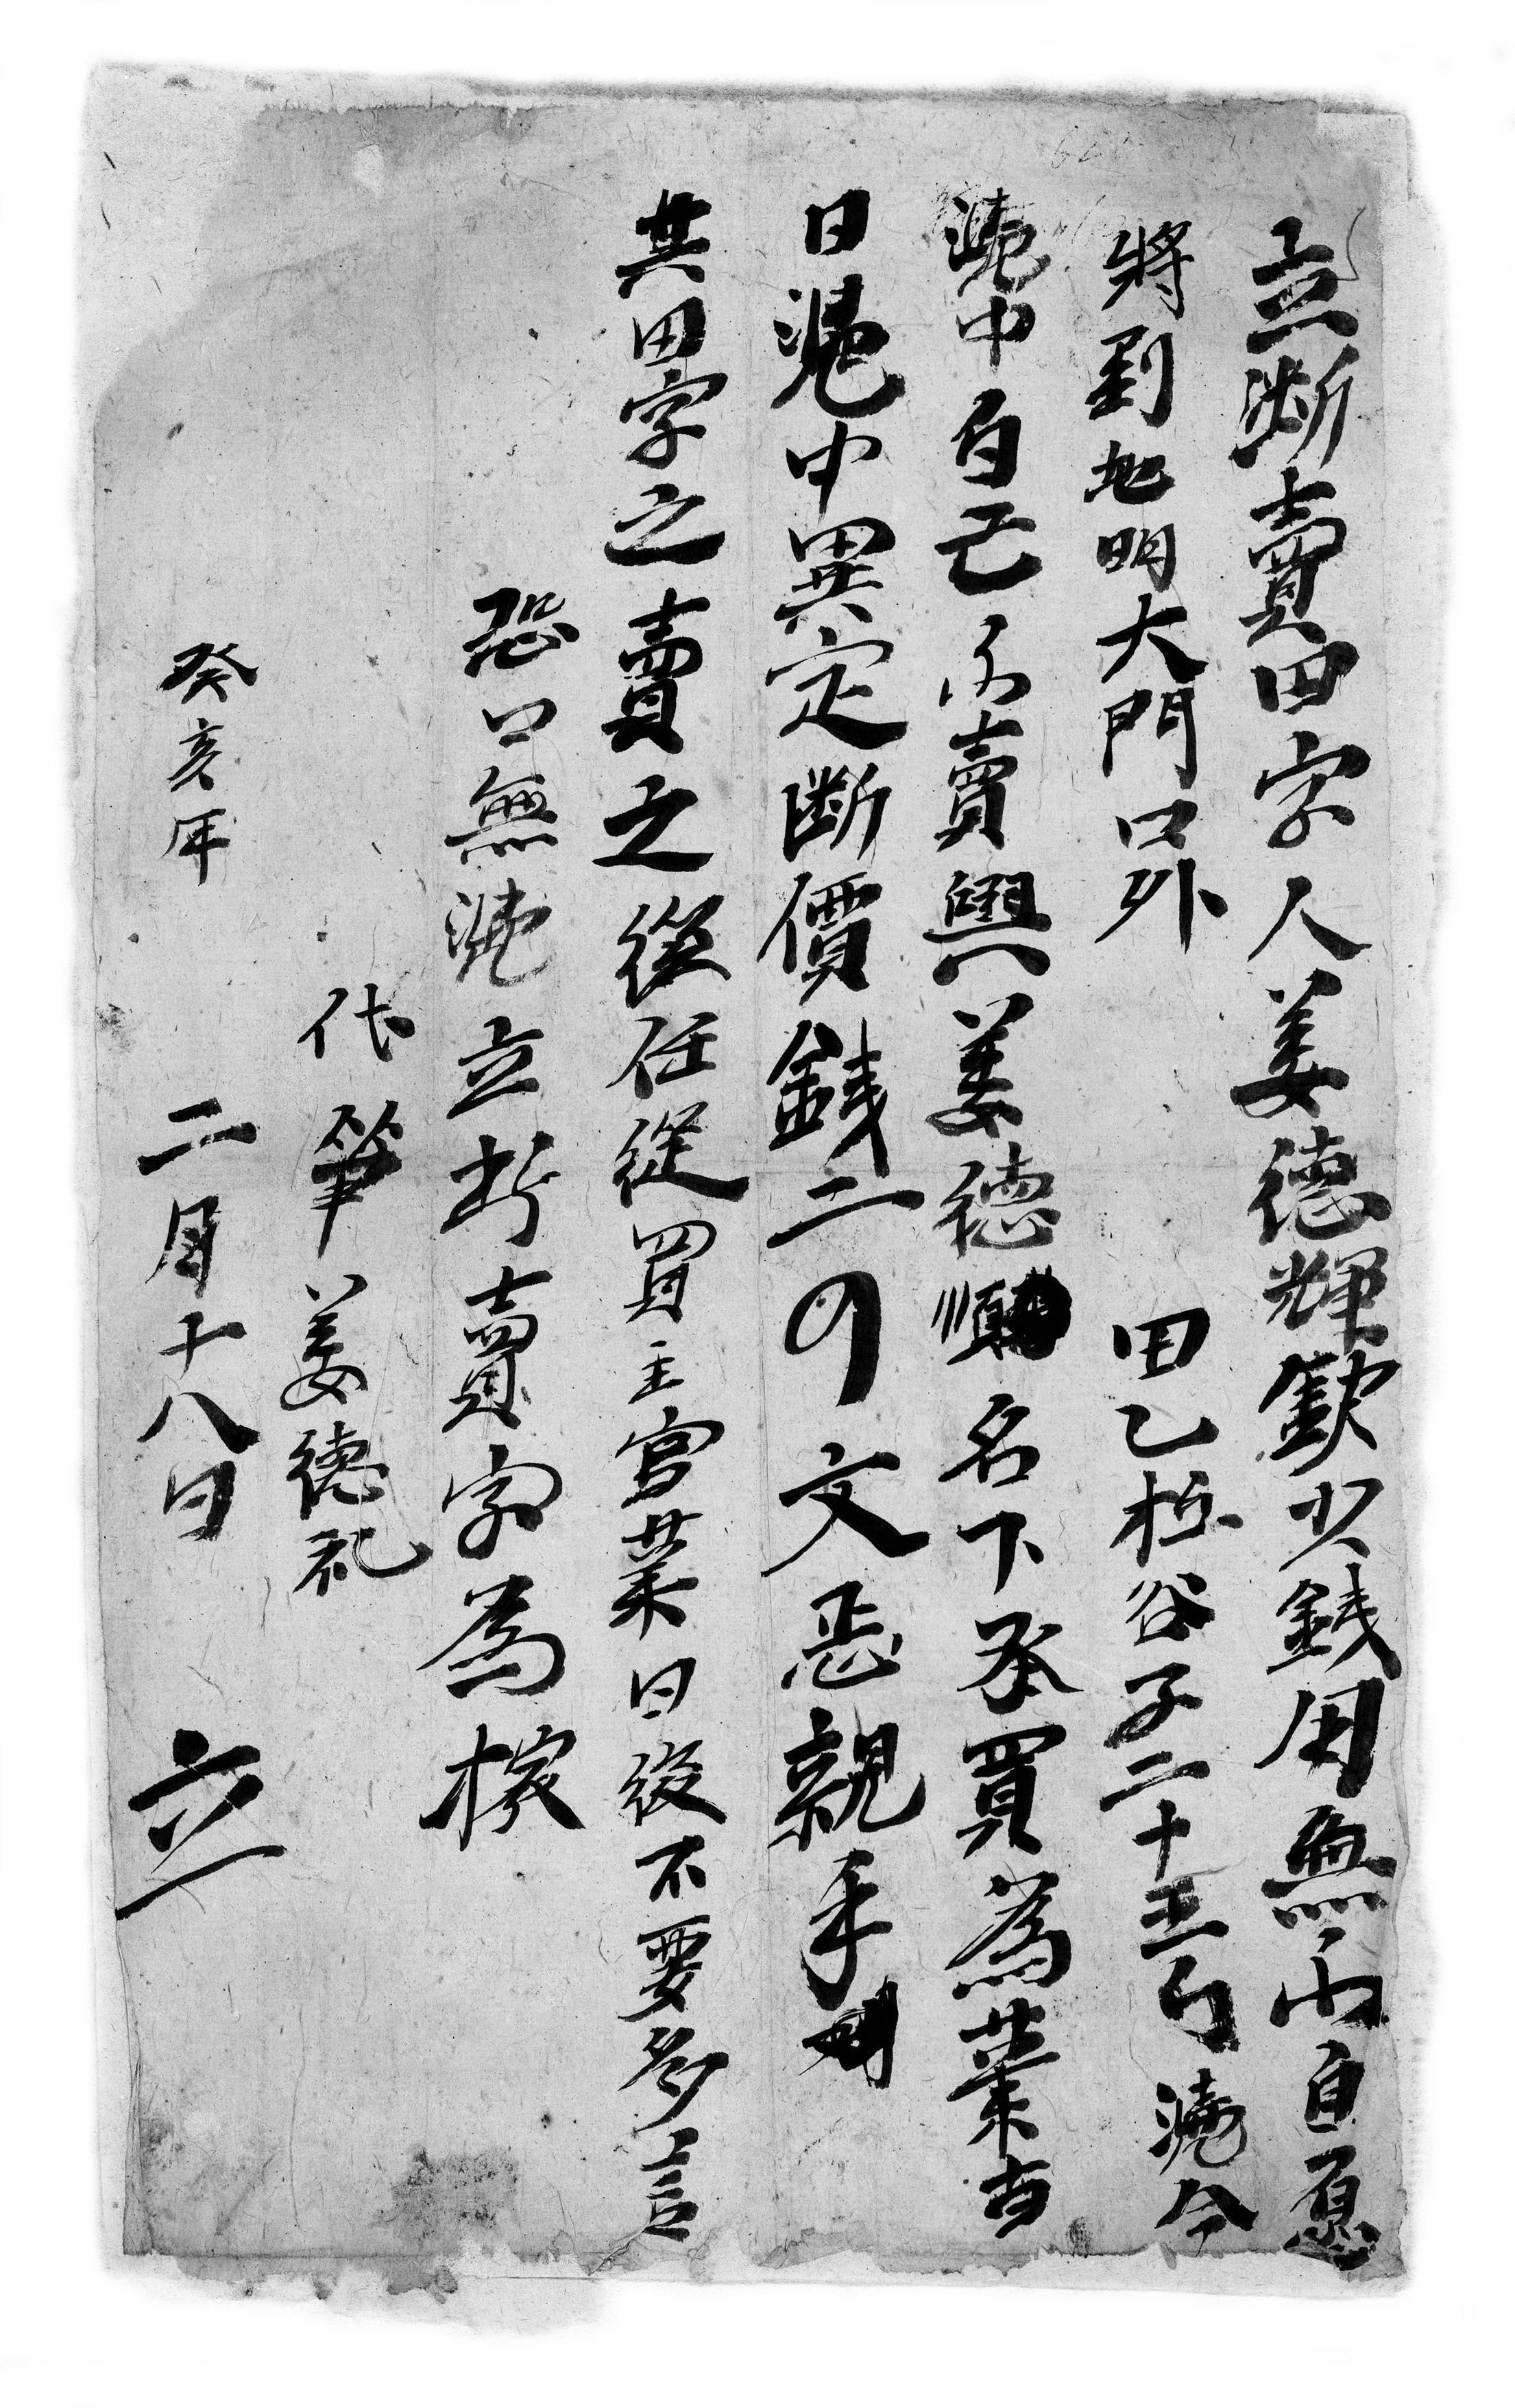 立断賣田字人姜德輝欽少錢用無㕯自愿
將到地明大門口外 田乙坵谷子二十五勻凴今
凴中自己㕯賣與姜德順名下承買為業古
日凴中異定断價錢二の文恶親手
其田字之賣之後任從買主宮業日後不要多言
恐口無凴立断賣字為㨿
代筆姜德礼
癸亥年 二月十八日 立